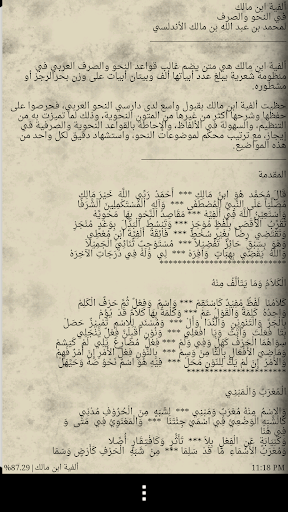 ألفية ابن مالك
في النحو والصرف
لمحمد بن عبد الله بن مالك الأندلسي
ألفية ابن مالك هي متن يضم غالب قواعد النحو والصرف العربي في
منظومة شعرية يبلغ عدد أبياتها ألف وبيتان أبيات على وزن بحر الرجز أو
مشطوره.
حظيت ألفية ابن مالك بقبول واسع لدى دارسي النحو العربي، فحرصوا على
حفظها وشرحها أكثر من غيرها من المتون النحوية، وذلك لما تميزت به من
التنظيم، والسهولة في الألفاظ، والإحاطة بالقواعد النحوية والصرفية في
إيجاز، مع ترتيب محكم لموضوعات النحو، واستشهاد دقيق لكل واحد من
هذه المواضيع.
المقدمة
قَالَ مُحَمَّد هُوَ ابنُ مَالِكِ *** أَحْمَدُ رَبِّي اللَّهَ خَيْرَ مَالِكِ
مُصَلِّيَاً عَلَى النَّبِيِّ الْمُصْطَفَى *** وآلِهِ الْمُسْتكْمِلِينَ الْشَّرَفَا
وَأَسْتعِيْنُ اللَّهَ فِي أَلْفِيَّهْ *** مَقَاصِدُ النَّحْوِ بِهَا مَحْوِيَّهْ
تُقَرِّبُ الأَقْصَى بِلَفْظٍ مُوْجَزِ *** وَتَبْسُطُ الْبَذْلَ بِوَعْدٍ مُنْجَزِ
وَتَقْتَضِي رِضَاً بِغَيْرِ سُخْطِ *** فَائِقَةً أَلْفِيَّةَ ابْنِ مُعْطِي
وَهْوَ بِسَبْقٍ حَائِزٌ تَفْضِيْلاَ *** مُسْتَوْجِبٌ ثَنَائِيَ الْجَمِيْلاَ
وَاللَّهُ يَقْضِي بِهِبَاتٍ وَافِرَهْ *** لِي وَلَهُ فِي دَرَجَاتِ الآخِرَهْ
************************
الْكَلاَمُ وَمَا يَتَأَلَّفُ مِنْهُ
كَلاَمُنَا لَفْظٌ مُفِيْدٌ كَاسْتَقِمْ *** وَاسْمٌ وَفِعْلٌ ثُمَّ حَرْفٌ الْكَلِمْ
وَاحِدُهُ كَلِمَةٌ وَالْقَوْلُ عَمْ *** وَكَلْمَةٌ بِهَا كَلاَمٌ قَدْ يُؤمْ
بِالجَرِّ وَالْتَّنْوِيْنِ وَالْنِّدَا وَأَلْ *** وَمُسْنَدٍ لِلاسْمِ تَمْيِيْزٌ حَصَلْ
بِتَا فَعَلْتَ وَأَتَتْ وَيَا افْعَلِي *** وَنُوْنِ أَقْبِلَنَّ فِعْلٌ يَنْجَلِي
سِوَاهُمَا الْحَرْفُ كَهَلْ وَفِي وَلَمْ *** فِعْلٌ مُضَارِعٌ يَلِي لَمْ كَيَشَمْ
وَمَاضِيَ الأَفْعَالِ بِالتَّا مِزْ وَسِمْ *** بِالنُّوْنِ فِعْلَ الأَمْرِ إِنْ أَمْرٌ فُهِمْ
وَالأَمْرُ إِنْ لَمْ يَكُ لِلنُّوْنِ مَحَلْ *** فِيْهِ هُوَ اسْمٌ نَحْوُ صَهْ وَحَيَّهَلْ
************************
الْمُعْرَبُ وَالْمَبْنِي
وَالاِسْمُ مِنْهُ مُعْرَبٌ وَمَبْنِي *** لِشَبَهٍ مِنَ الْحُرُوْفِ مُدْنِي
كَالْشَّبَهِ الْوَضْعِيِّ فِي اسْمَيْ جِئْتَنَا *** وَالْمَعْنَوِيِّ فِي مَتَى وَ
فِي هُنَا
وَكَنِيَابَةٍ عَنِ الْفِعْلِ بِلاَ *** تَأَثُّرٍ وَكَافْتِقَارٍ أُصِّلاَ
وَمُعْرَبُ الأَسْمَاءِ مَا قَدْ سَلِمَا *** مِنْ شَبَهِ الْحَرْفِ كَأَرْضٍ وَسُمَا
11:18 PM
ألفية ابن مالك | %87.29